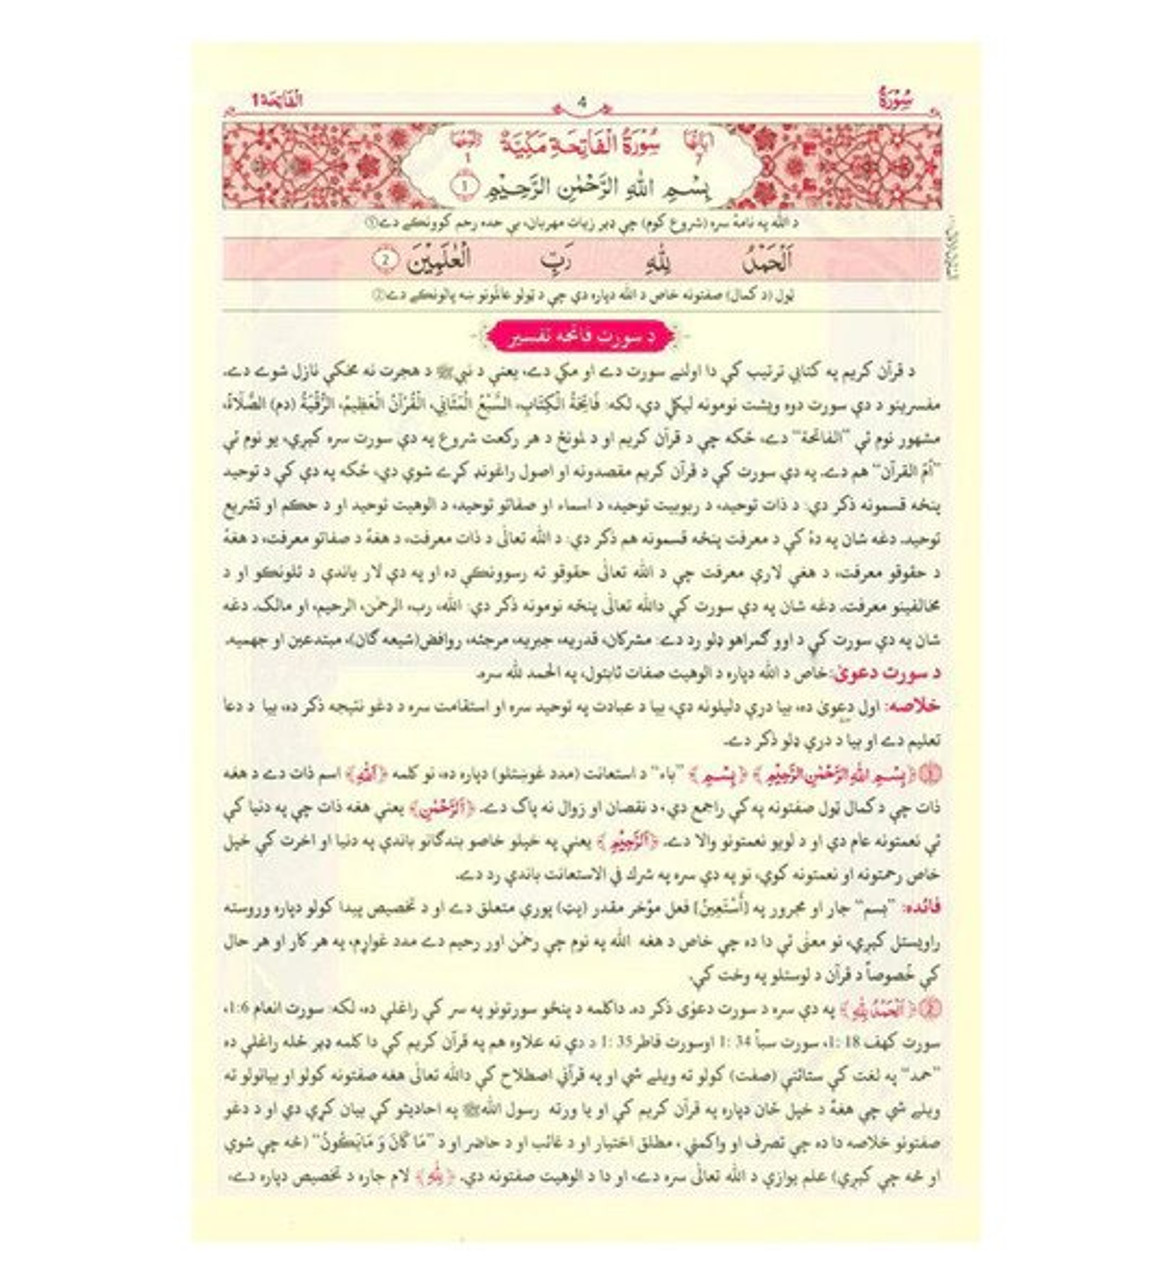 سُوْرَةُ 4 اَلْفَاتِحَة 1
اٰیَاتُهَا 7 سُوْرَةُ الْفَاتِحَةِ مَكِّيَّةٌ رُكُوْعُهَا 1
بِسْمِ اللهِ الرَّحْمٰنِ الرَّحِيْمِ 1
د الله په نامهٔ سره (شروع کوم) چې ډېر زيات مهربان، بې حده رحم کوونکے دے①
اَلْحَمْدُ لِلّٰهِ رَبِّ الْعٰلَمِيْنَ 2
ټول (د کمال) صفتونه خاص د الله دپاره دي چې د ټولو عالمونو ښه پالونکے دے②
د سورت فاتحه تفسير
د قرآن کريم په کتابي ترتيب کې دا اولنے سورت دے او مکي دے، يعني د نبيﷺ د هجرت نه مخکې نازل شوے دے.
مفسرينو د دې سورت دوه ويشت نومونه ليکلي دي، لکه: فَاتِحَةُ الْكِتَابِ، السَّبْعُ الْمَثَانِي، الْقُرْآنُ الْعَظِيْمُ، الرُّقْيَةُ (دم) الصَّلَاةُ،
مشهور نوم ئې "الفاتحة" دے، ځکه چې د قرآن کريم او د لمونځ د هر رکعت شروع په دې سورت سره کيږي، يو نوم ئې
"اُمّ القرآن" هم دے. په دې سورت کې د قرآن کريم مقصدونه او اصول راغونډ کړے شوي دي، ځکه په دې کې د توحيد
پنځه قسمونه ذکر دي: د ذات توحيد، د ربوبيت توحيد، د اسماء او صفاتو توحيد، د الوهيت توحيد او د حکم او تشريع
توحيد. دغه شان په دهٔ کې د معرفت پنځه قسمونه هم ذکر دي: د الله تعالٰی د ذات معرفت، د هغهٔ د صفاتو معرفت، د هغهٔ
د حقوقو معرفت، د هغې لارې معرفت چې د الله تعالٰی حقوقو ته رسوونکې ده او په دې لار باندې د تلونکو او د
مخالفينو معرفت. دغه شان په دې سورت کې دالله تعالٰی پنځه نومونه ذکر دي: الله، رب، الرحمٰن، الرحيم، او مالک. دغه
شان په دې سورت کې د اوو ګمراهو ډلو رد دے: مشرکان، قدريه، جبريه، مرجئه، روافض(شيعه ګان)، مبتدعين او جهميه.
د سورت دعوىٰ:خاص د الله دپاره د الوهيت صفات ثابتول، په الحمد لله سره.
خلاصه: اول دعوىٰ ده، بيا درې دليلونه دي، بيا د عبادت په توحيد سره او استقامت سره د دغو نتيجه ذکر ده، بيا د دعا
تعليم دے او بيا د درې ډلو ذکر دے.
1 ﴿بِسْمِ اللهِ الرَّحْمٰنِ الرَّحِيْمِ﴾ ﴿بِسْمِ﴾ "باء" د استعانت (مدد غوښتلو) دپاره ده، نو کلمه ﴿اَللّٰه﴾ اسم ذات دے د هغه
ذات چې د کمال ټول صفتونه په کې راجمع دي، د نقصان او زوال نه پاک دے. ﴿اَلرَّحْمٰنِ﴾ يعني هغه ذات چې په دنيا کې
ئې نعمتونه عام دي او د لويو نعمتونو والا دے. ﴿اَلرَّحِيْمِ﴾ يعني په خپلو خاصو بندګانو باندې په دنيا او اخرت کې خپل
خاص رحمتونه او نعمتونه کوي، نو په دې سره په شرك في الاستعانت باندې رد دے.
فائده: "بسم" جار او مجرور په [أَسْتَعِينُ] فعل مؤخر مقدر (پټ) پورې متعلق دے او د تخصيص پيدا کولو دپاره وروسته
راوستل کيږي، نو معنٰی ئې دا ده چې خاص د هغه الله په نوم چې رحمٰن اور رحيم دے مدد غواړم، په هر کار او هر حال
کې خُصوصاً د قرآن د لوستلو په وخت کې.
2 ﴿اَلْحَمْدُ لِلّٰهِ﴾ په دې سره د سورت دعوٰی ذکر ده. داکلمه د پنځو سورتونو په سر کې راغلې ده، لکه: سورت انعام 1:6،
سورت کهف 18 :1، سورت سبأ 34 :1 اوسورت فاطر35 :1 د دې نه علاوه هم په قرآن کريم کې دا کلمه ډېر ځله راغلې ده
"حمد" په لغت کې ستائنې (صفت) کولو ته ويلے شي او په قرآني اصطلاح کې دالله تعالٰی هغه صفتونه کولو او بيانولو ته
ويلے شي چې هغهٔ د خپل ځان دپاره په قرآن کريم کې او يا ورته رسول اللهﷺ په احاديثو کې بيان کړي دي او د دغو
صفتونو خلاصه دا ده چې تصرف او واکمني، مطلق اختيار او د غائب او د حاضر او د "مَا كَانَ وَ مَايَكُوْنُ" (څه چې شوي
او څه چې کيږي) علم يوازې د الله تعالٰی سره دے، او دا د الوهيت صفتونه دي. ﴿لِلّٰهِ﴾ لام جاره د تخصيص دپاره دے،